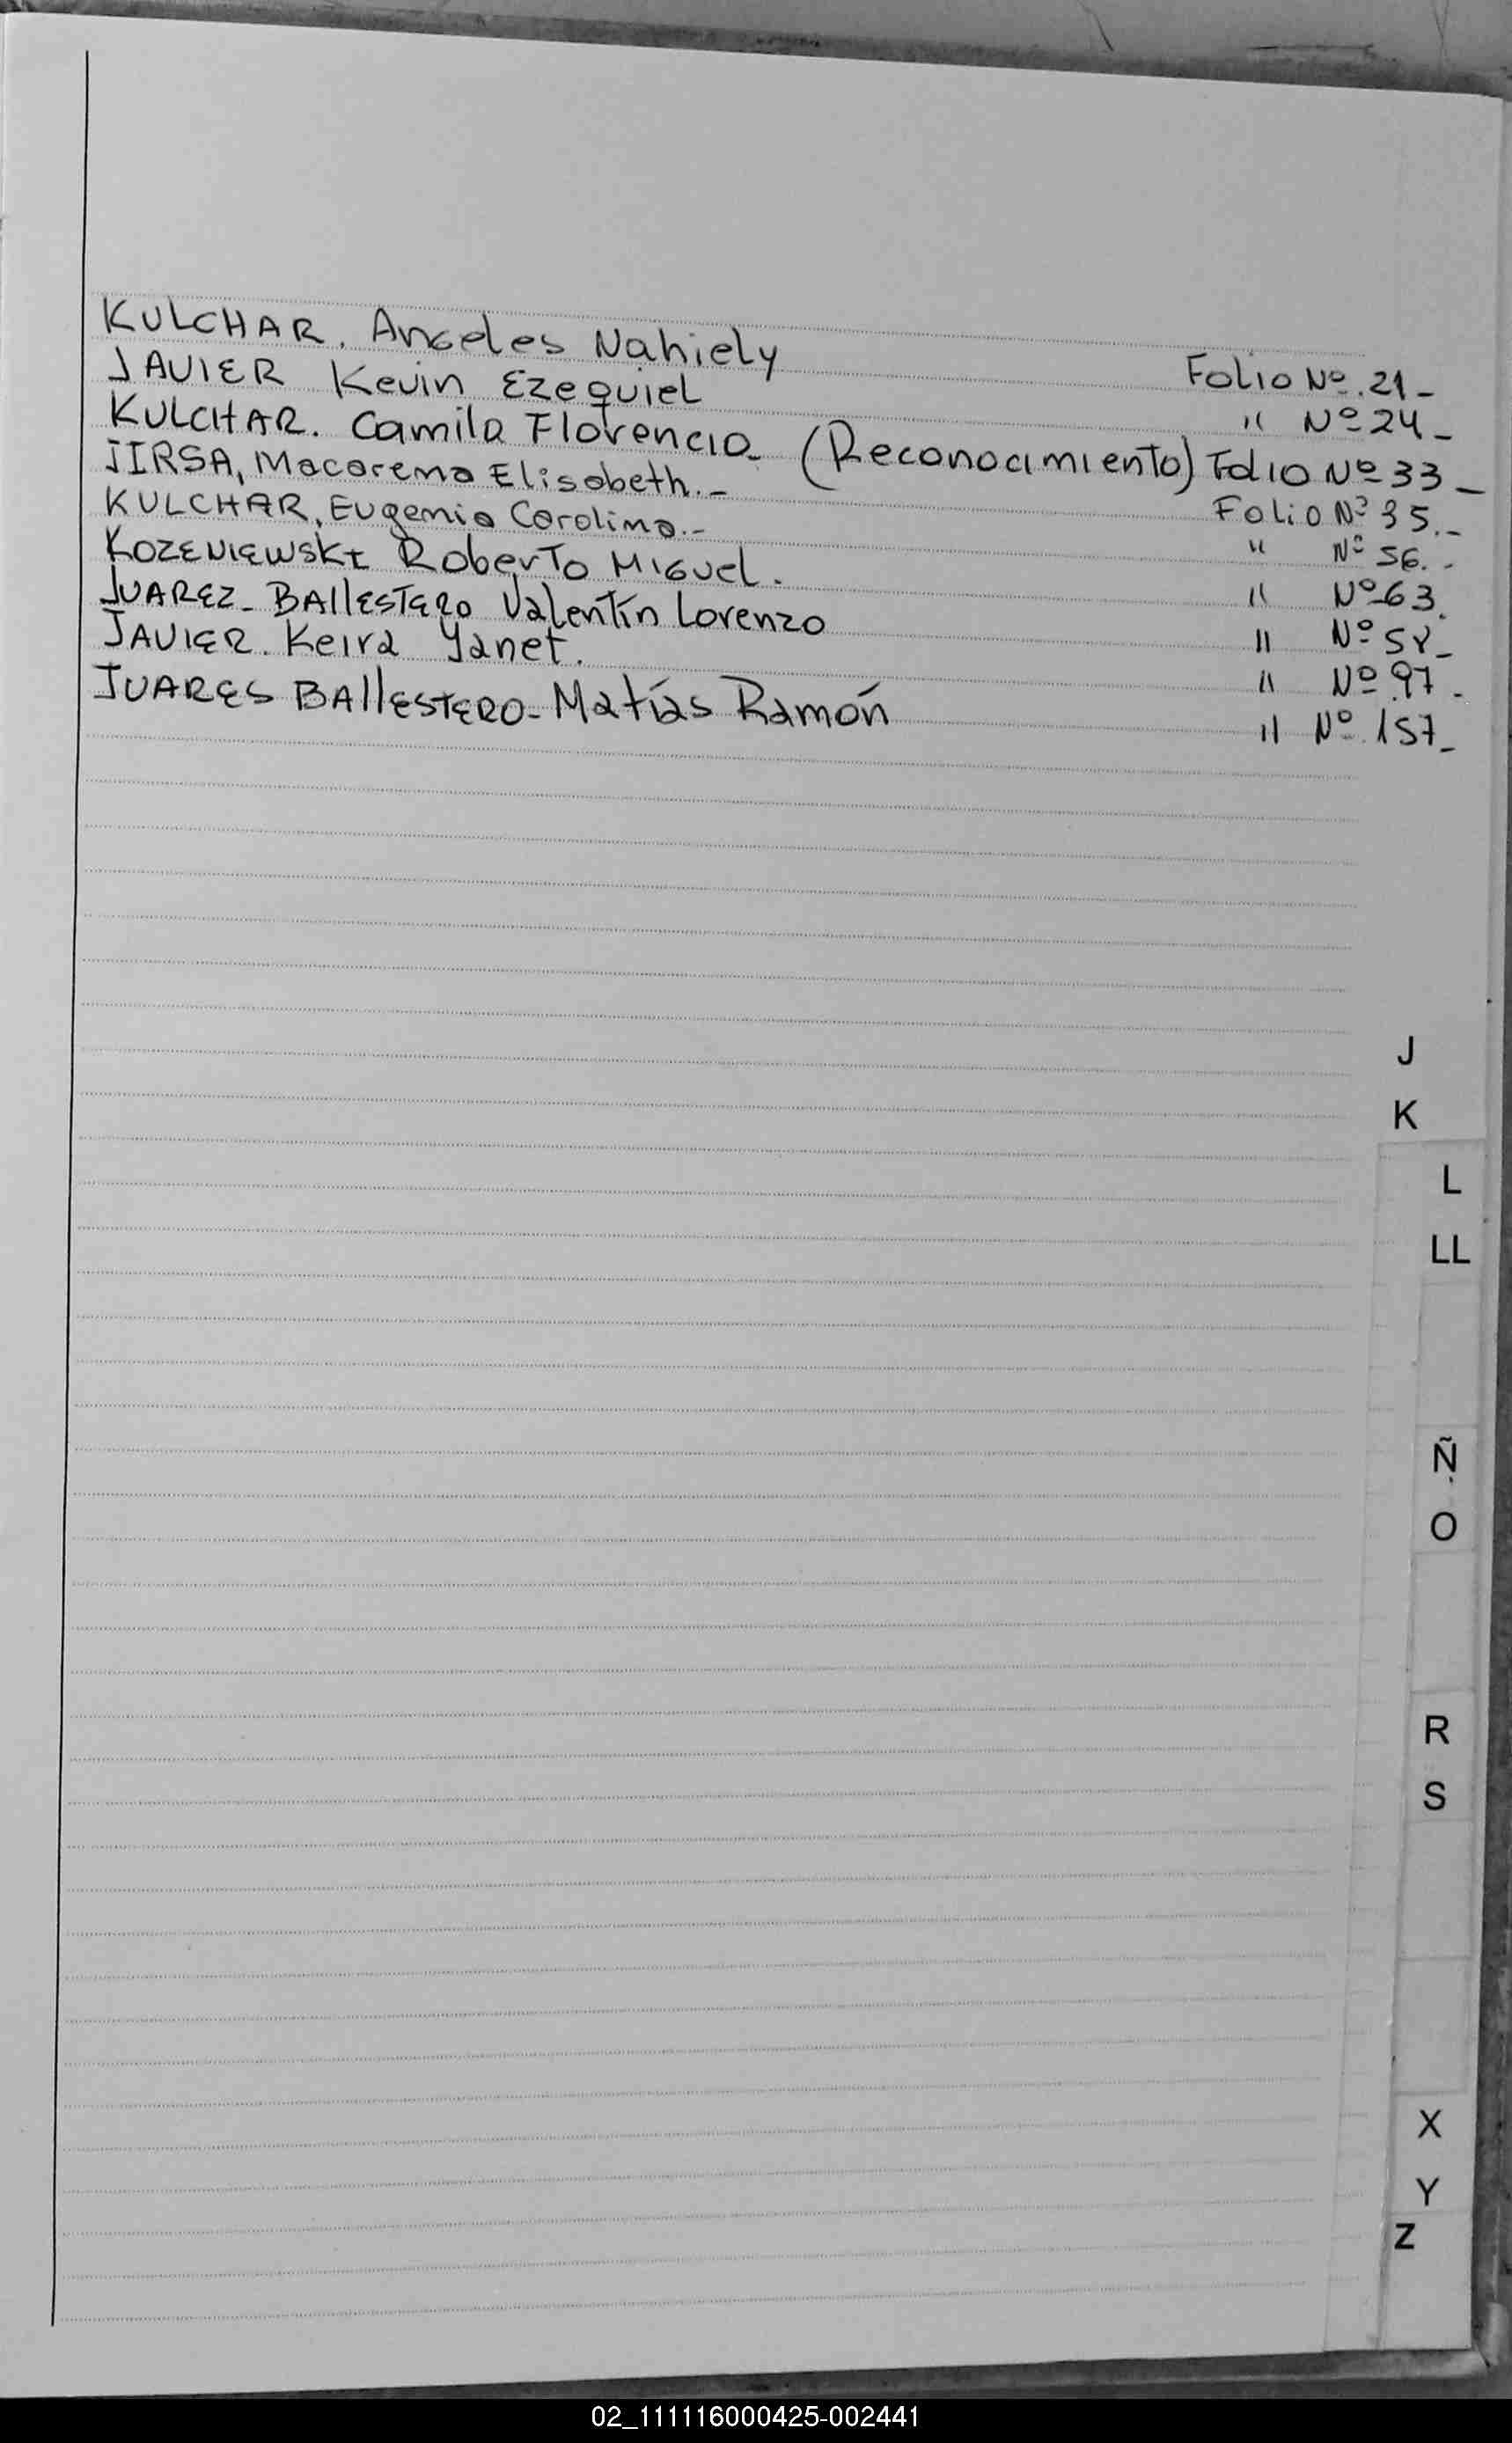 KULCHAR. Angeles Nahiely Folio Nº. 21-
JAVIER Kevin Ezequiel " Nº 24-
KULCHAR. Camila Florencia- (Reconocimiento) Folio Nº 33-
JIRSA, Macarena Elisabeth.- Folio Nº 35.-
KULCHAR, Eugenia Carolina.- " Nº 56.-
KOZENIEWSKI Roberto Miguel. " Nº 63.
JUAREZ- BAllESTERO Valentín Lorenzo " Nº
JAVIER. Keira Yanet. " Nº 97.
JUARES BAllESTERO- Matías Ramón " Nº 157-
J
K
L
LL
Ñ
O
R
S
X
Y
Z
02_111116000425-002441